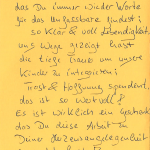 das Du immer wieder Worte
für das Unfassbare findest;
so klar & voll Lebendigkeit,
uns Wege gezeigt hast
die tiefe Trauer um unsere
Kinder zu integrieren;
Trost & Hoffnung spendend,
das ist so wertvoll!
Es ist wirklich ein Geschenk
das Du diese Arbeit zu
Deiner Herzensangelegenheit